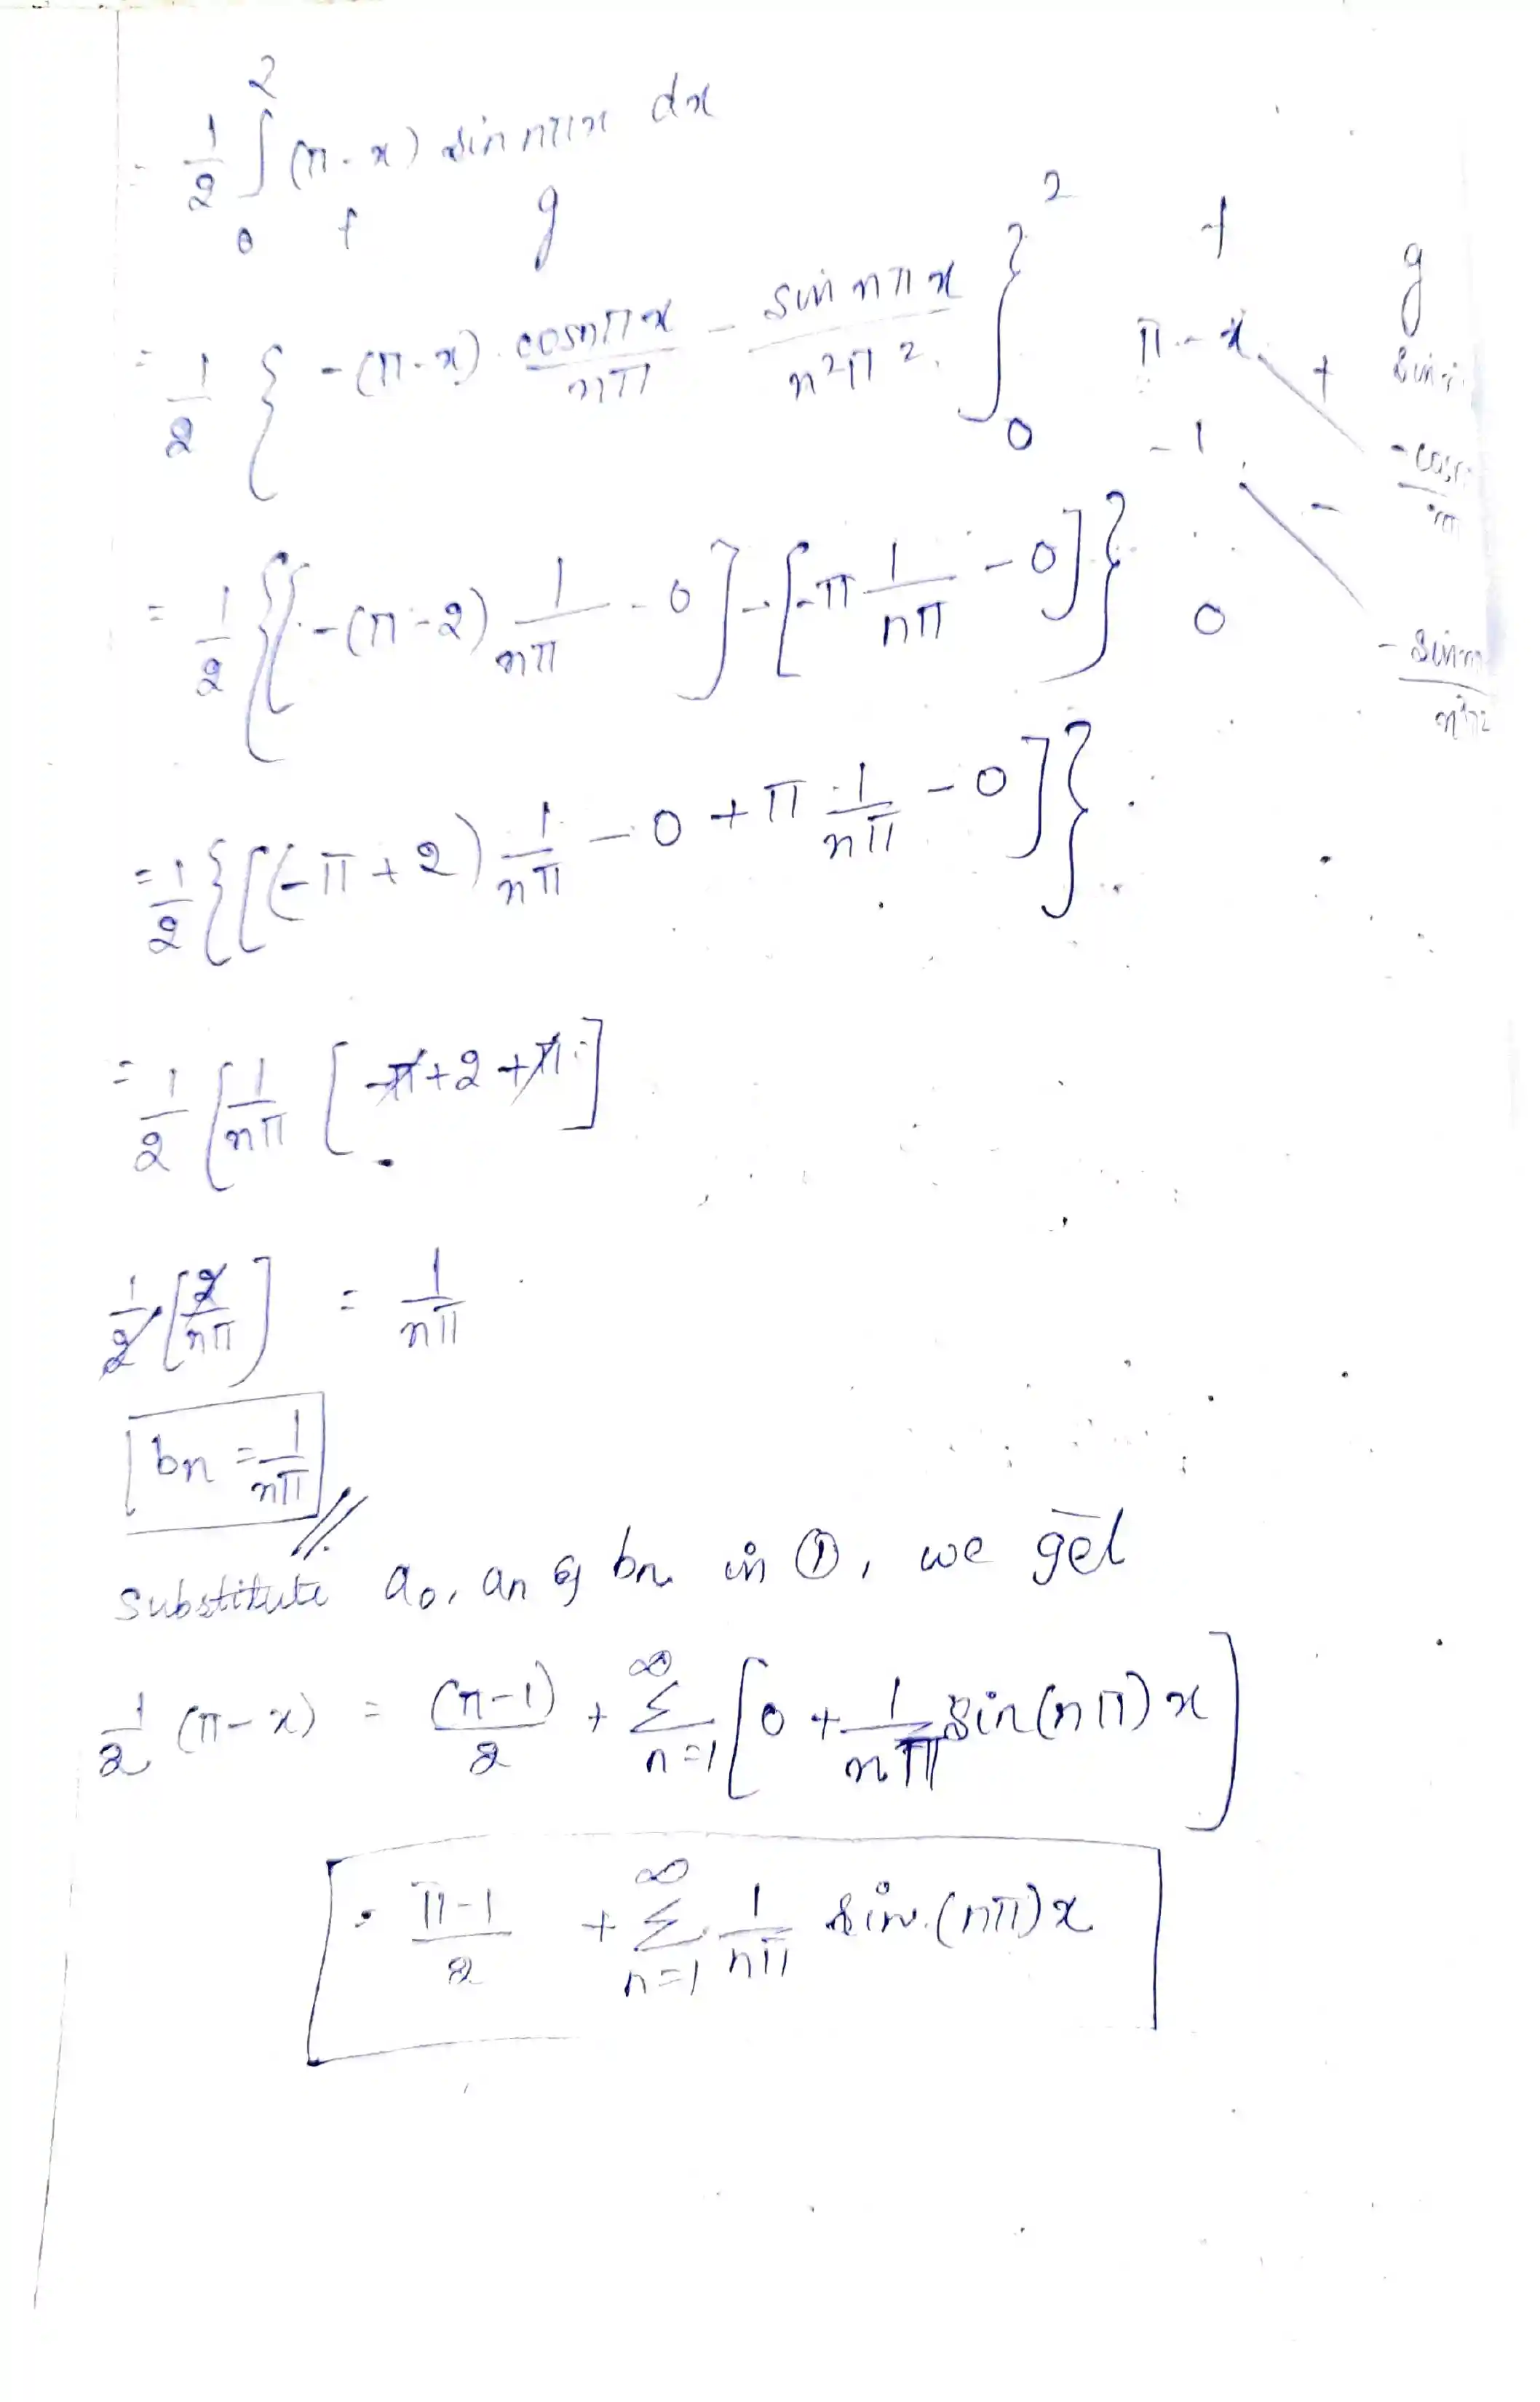 = 1/2 ∫₀² (π-x) sin nπx dx
f g
= 1/2 { -(π-x) cosnπx/nπ - sin nπx/n²π² }₀²
f g
π-x +
-1 -
0
= 1/2 {[-(π-2) 1/nπ - 0] - [-π 1/nπ - 0]}
= 1/2 {[(-π+2) 1/nπ - 0 + π 1/nπ - 0]}
= 1/2 [1/nπ [-π+2+π]
1/2 [2/nπ] = 1/nπ
bn = 1/nπ //
Substitute a₀, an & bn in ①, we get
1/2 (π-x) = (π-1)/2 + ∞Σn=1 [0 + 1/nπ sin(nπ)x]
= π-1/2 + ∞Σn=1 1/nπ sin.(nπ)x